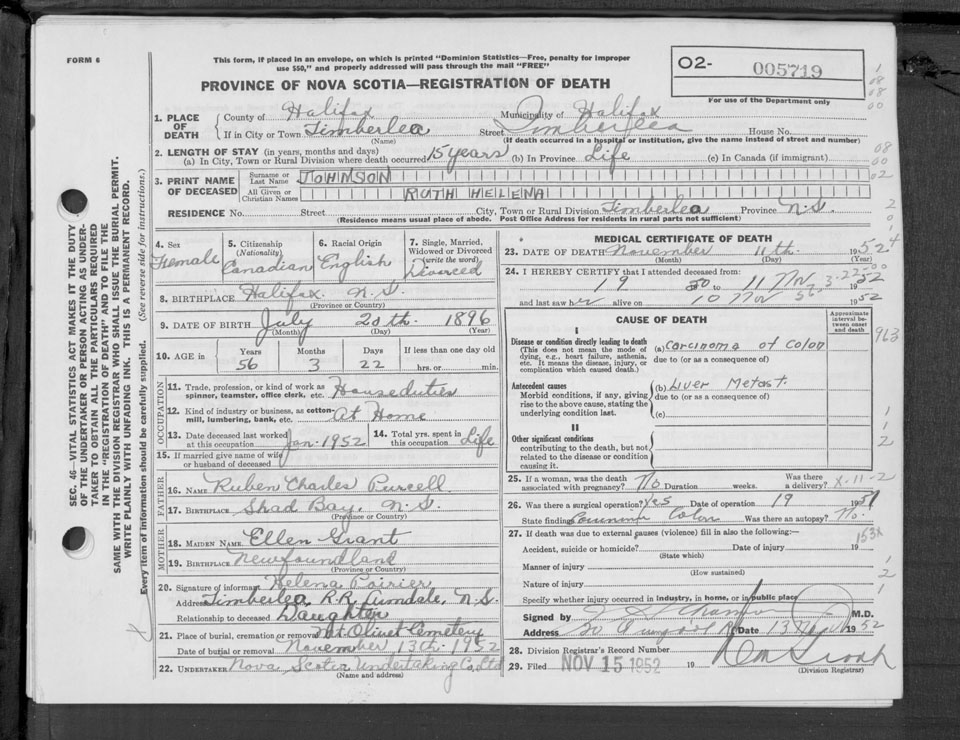 FORM 6
This form, if placed in an envelope, on which is printed "Dominion Statistics—Free, penalty for improper
use $50," and properly addressed will pass through the mail "FREE"
PROVINCE OF NOVA SCOTIA—REGISTRATION OF DEATH
O2- 005719
For use of the Department only
1. PLACE OF DEATH
County of Halifax Municipality of Halifax
If in City or Town Timberlea Street Timberlea House No.
(Name) (If death occurred in a hospital or institution, give the name instead of street and number)
2. LENGTH OF STAY (in years, months and days)
(a) In City, Town or Rural Division where death occurred 15 years (b) In Province Life (c) In Canada (if immigrant)
3. PRINT NAME OF DECEASED
Surname or Last Name JOHNSON
All Given or Christian Names RUTH HELENA
RESIDENCE No. Street City, Town or Rural Division Timberlea Province N.S.
(Residence means usual place of abode. Post Office Address for rural parts not sufficient)
4. Sex Female
5. Citizenship (Nationality) Canadian
6. Racial Origin English
7. Single, Married, Widowed or Divorced (write the word) Divorced
8. BIRTHPLACE Halifax N.S.
(Province or Country)
9. DATE OF BIRTH July 20th. 1896
(Month) (Day) (Year)
10. AGE in Years 56 Months 3 Days 22 If less than one day old hrs. or min.
OCCUPATION
11. Trade, profession, or kind of work as spinner, teamster, office clerk, etc. Houseduties
12. Kind of industry or business, as cotton-mill, lumbering, bank, etc. At Home
13. Date deceased last worked at this occupation Jan. 1952
14. Total yrs. spent in this occupation Life
15. If married give name of wife or husband of deceased
FATHER
16. NAME Ruben Charles Purcell
17. BIRTHPLACE Shad Bay, N.S.
(Province or Country)
MOTHER
18. MAIDEN NAME Ellen Grant
19. BIRTHPLACE Newfoundland
(Province or Country)
20. Signature of informant Helena Poirier
Address Timberlea R.R. Armdale, N.S.
Relationship to deceased Daughter
21. Place of burial, cremation or removal Mt. Olivet Cemetery
Date of burial or removal November 13th. 1952
22. UNDERTAKER Nova Scotia Undertaking Co. Ltd
(Name and address)
MEDICAL CERTIFICATE OF DEATH
23. DATE OF DEATH November 11th 1952
(Month) (Day) (Year)
24. I HEREBY CERTIFY that I attended deceased from:
19 50 to 11 Nov 1952
and last saw her alive on 10 Nov 1952
CAUSE OF DEATH
Approximate interval between onset and death
I
Disease or condition directly leading to death
(This does not mean the mode of dying, e.g., heart failure, asthenia, etc. It means the disease, injury, or complication which caused death.)
(a) Carcinoma of Colon
due to (or as a consequence of)
Antecedent causes
Morbid conditions, if any, giving rise to the above cause, stating the underlying condition last.
(b) Liver Metast.
due to (or as a consequence of)
(c)
II
Other significant conditions
contributing to the death, but not related to the disease or condition causing it.
25. If a woman, was the death associated with pregnancy? No Duration weeks. Was there a delivery? X-11-2
26. Was there a surgical operation? Yes Date of operation 19 1951
State findings Colon Was there an autopsy? No.
27. If death was due to external causes (violence) fill in also the following:—
Accident, suicide or homicide? Date of injury 19
(State which)
Manner of injury
(How sustained)
Nature of injury
Specify whether injury occurred in industry, in home, or in public place
Signed by M.D.
Address Date 13 Nov 1952
28. Division Registrar's Record Number
29. Filed NOV 15 1952 19
(Division Registrar)
SEC. 46—VITAL STATISTICS ACT MAKES IT THE DUTY
OF THE UNDERTAKER OR PERSON ACTING AS UNDER-
TAKER TO OBTAIN ALL THE PARTICULARS REQUIRED
IN THE "REGISTRATION OF DEATH" AND TO FILE THE
SAME WITH THE DIVISION REGISTRAR WHO SHALL ISSUE THE BURIAL PERMIT.
WRITE PLAINLY WITH UNFADING INK. THIS IS A PERMANENT RECORD.
Every item of information should be carefully supplied. (See reverse side for instructions.)